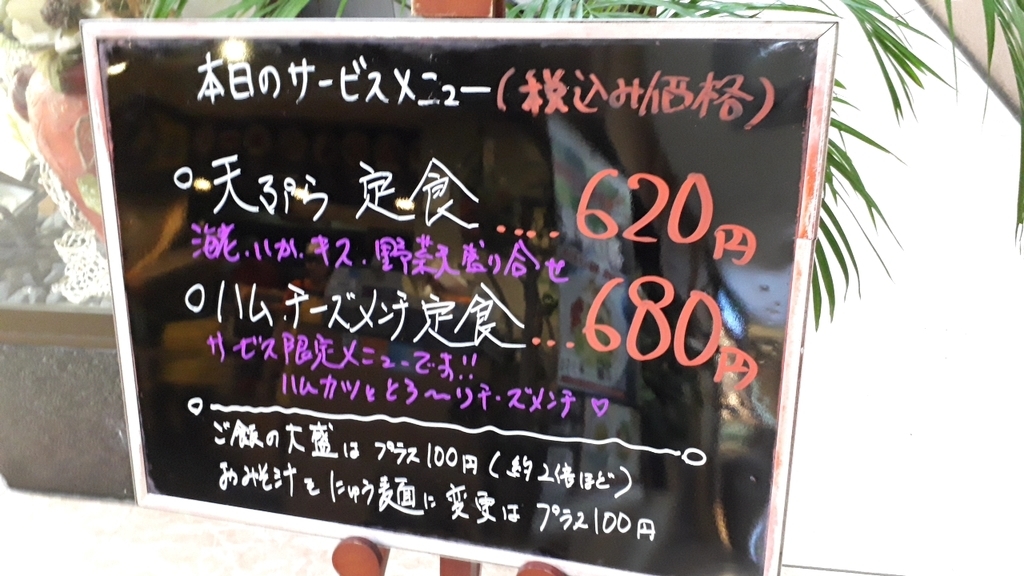 本日のサービスメニュー(税込み価格)
○天ぷら 定食.....620円
海老.いか.キス.野菜天盛り合せ
○ハムチーズメンチ定食...680円
サービス限定メニューです!!
ハムカツととろ〜りチーズメンチ♡
ご飯の大盛は プラス100円(約2倍ほど)
おみそ汁をにゅう麺に変更は プラス100円